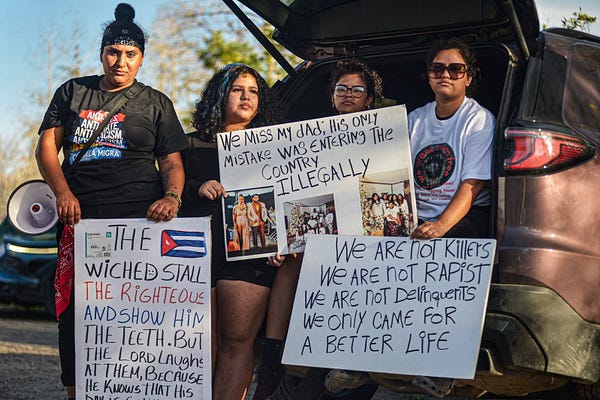 THE
WICHED STALL
THE RIGHTEOUS
AND SHOW HIM
THE TEETH. BUT
THE LORD LAUGHS
AT THEM, BECAUSE
HE KNOWS THAT HIS
WE MISS MY DAD; HIS ONLY
MISTAKE WAS ENTERING THE
COUNTRY
ILLEGALLY
WE ARE NOT KILLERS
WE ARE NOT RAPIST
WE ARE NOT DELINQUENTS
WE ONLY CAME FOR
A BETTER LIFE
LA MIGRA
MIGRA